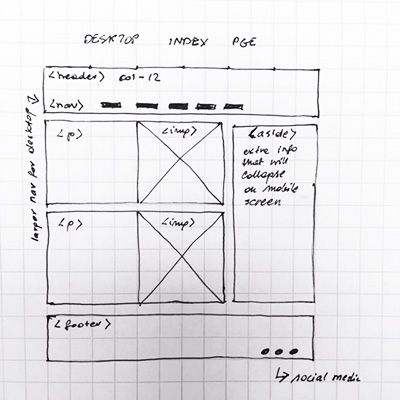 DESKTOP INDEX PGE
<header> col-12
<nav>
larger nav for desktop
<p>
<img>
<aside>
extra info
that will
collapse
on mobile
screen
<p>
<img>
<footer>
social media